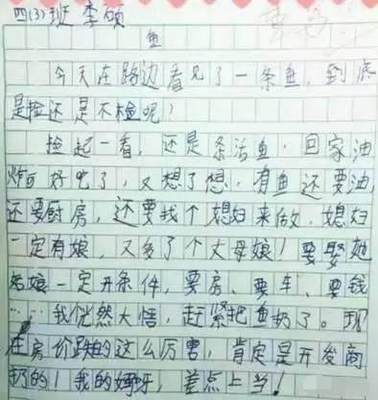 四(3)班 李硕
鱼
今天在路边看见了一条鱼，到底
是捡还是不检呢？
捡起一看，还是条活鱼，回家油
炸可好吃了，又想了想，有鱼还要油，
还要厨房，还要找个媳妇来做，媳妇
一定有娘，又多了个丈母娘！要娶她
老娘一定开条件，要房、要车、要钱
……我恍然大悟，赶紧把鱼扔了。现
在房价跌的这么厉害，肯定是开发商
扔的！我的妈呀，差点上当！